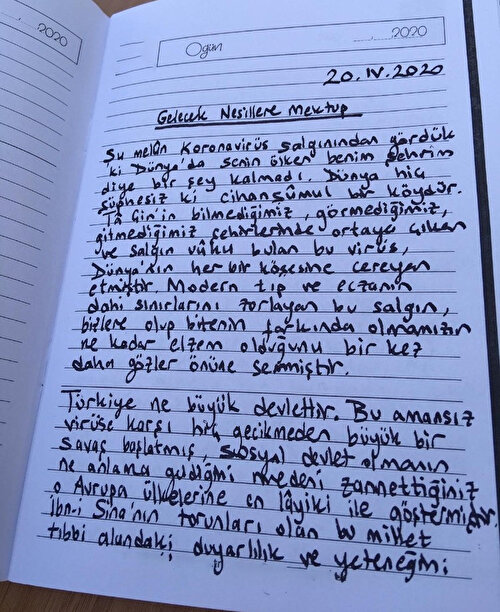 2020
Ogün
2020
20.IV.2020
Gelecek Nesillere Mektup
Şu melûn Koronavirüs salgınından gördük
ki Dünya'da senin ülken benim şehrim
diye bir şey kalmadı. Dünya hiç
şüphesiz ki cihanşümul bir köydür.
Tâ Çin'in bilmediğimiz, görmediğimiz,
gitmediğimiz şehirlerinde ortaya çıkan
ve salgın vâku bulan bu virüs,
Dünya'nın her bir köşesine cereyan
etmiştir. Modern tıp ve eczanın
dahi sınırlarını zorlayan bu salgın,
bizlere olup bitenin farkında olmamızın
ne kadar elzem olduğunu bir kez
daha gözler önüne sermiştir.
Türkiye ne büyük devlettir. Bu amansız
virüse karşı hiç gecikmeden büyük bir
savaş başlatmış, sosyal devlet olmanın
ne anlama geldiğini medeni zannettiğiniz
o Avrupa ülkelerine en lâyiki ile göstermiştir
İbn-i Sina'nın torunları olan bu millet
tıbbi alandaki duyarlılık ve yeteneğini